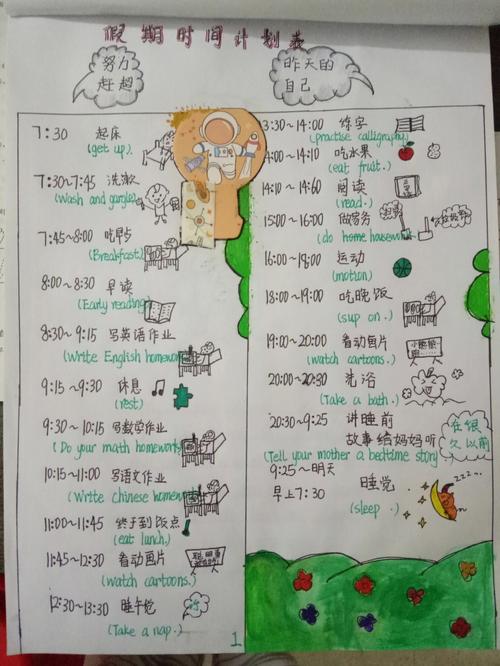 假期时间计划表
努力
赶超
昨天的
自己
7:30 起床
(get up).
7:30~7:45 洗漱
(Wash and gargle)
7:45~8:00 吃早点
(Breakfast).
8:00~8:30 早读
(Early reading)
8:30~9:15 写英语作业
(Write English homework)
9:15~9:30 休息
(rest)
9:30~10:15 写数学作业
(Do your math homework)
10:15~11:00 写语文作业
(Write chinese homework)
11:00~11:45 终于到饭点
(eat lunch.)
11:45~12:30 看动画片
(watch cartoons.)
12:30~13:30 睡午觉
(Take a nap.)
1
3:30~14:00 练字
(practise calligraphy)
14:00~14:10 吃水果
(eat fruit.)
14:10~14:60 阅读
(read.)
15:00~16:00 做家务
(do home housework)
16:00~18:00 运动
(motion)
18:00~19:00 吃晚饭
(sup on.)
19:00~20:00 看动画片
(watch cartoons.)
20:00~20:30 洗浴
(Take a bath.)
20:30~9:25 讲睡前
故事给妈妈听
(Tell your mother a bedtime story)
在很
久以前
9:25~明天
早上7:30 睡觉
(sleep.)
zzz...